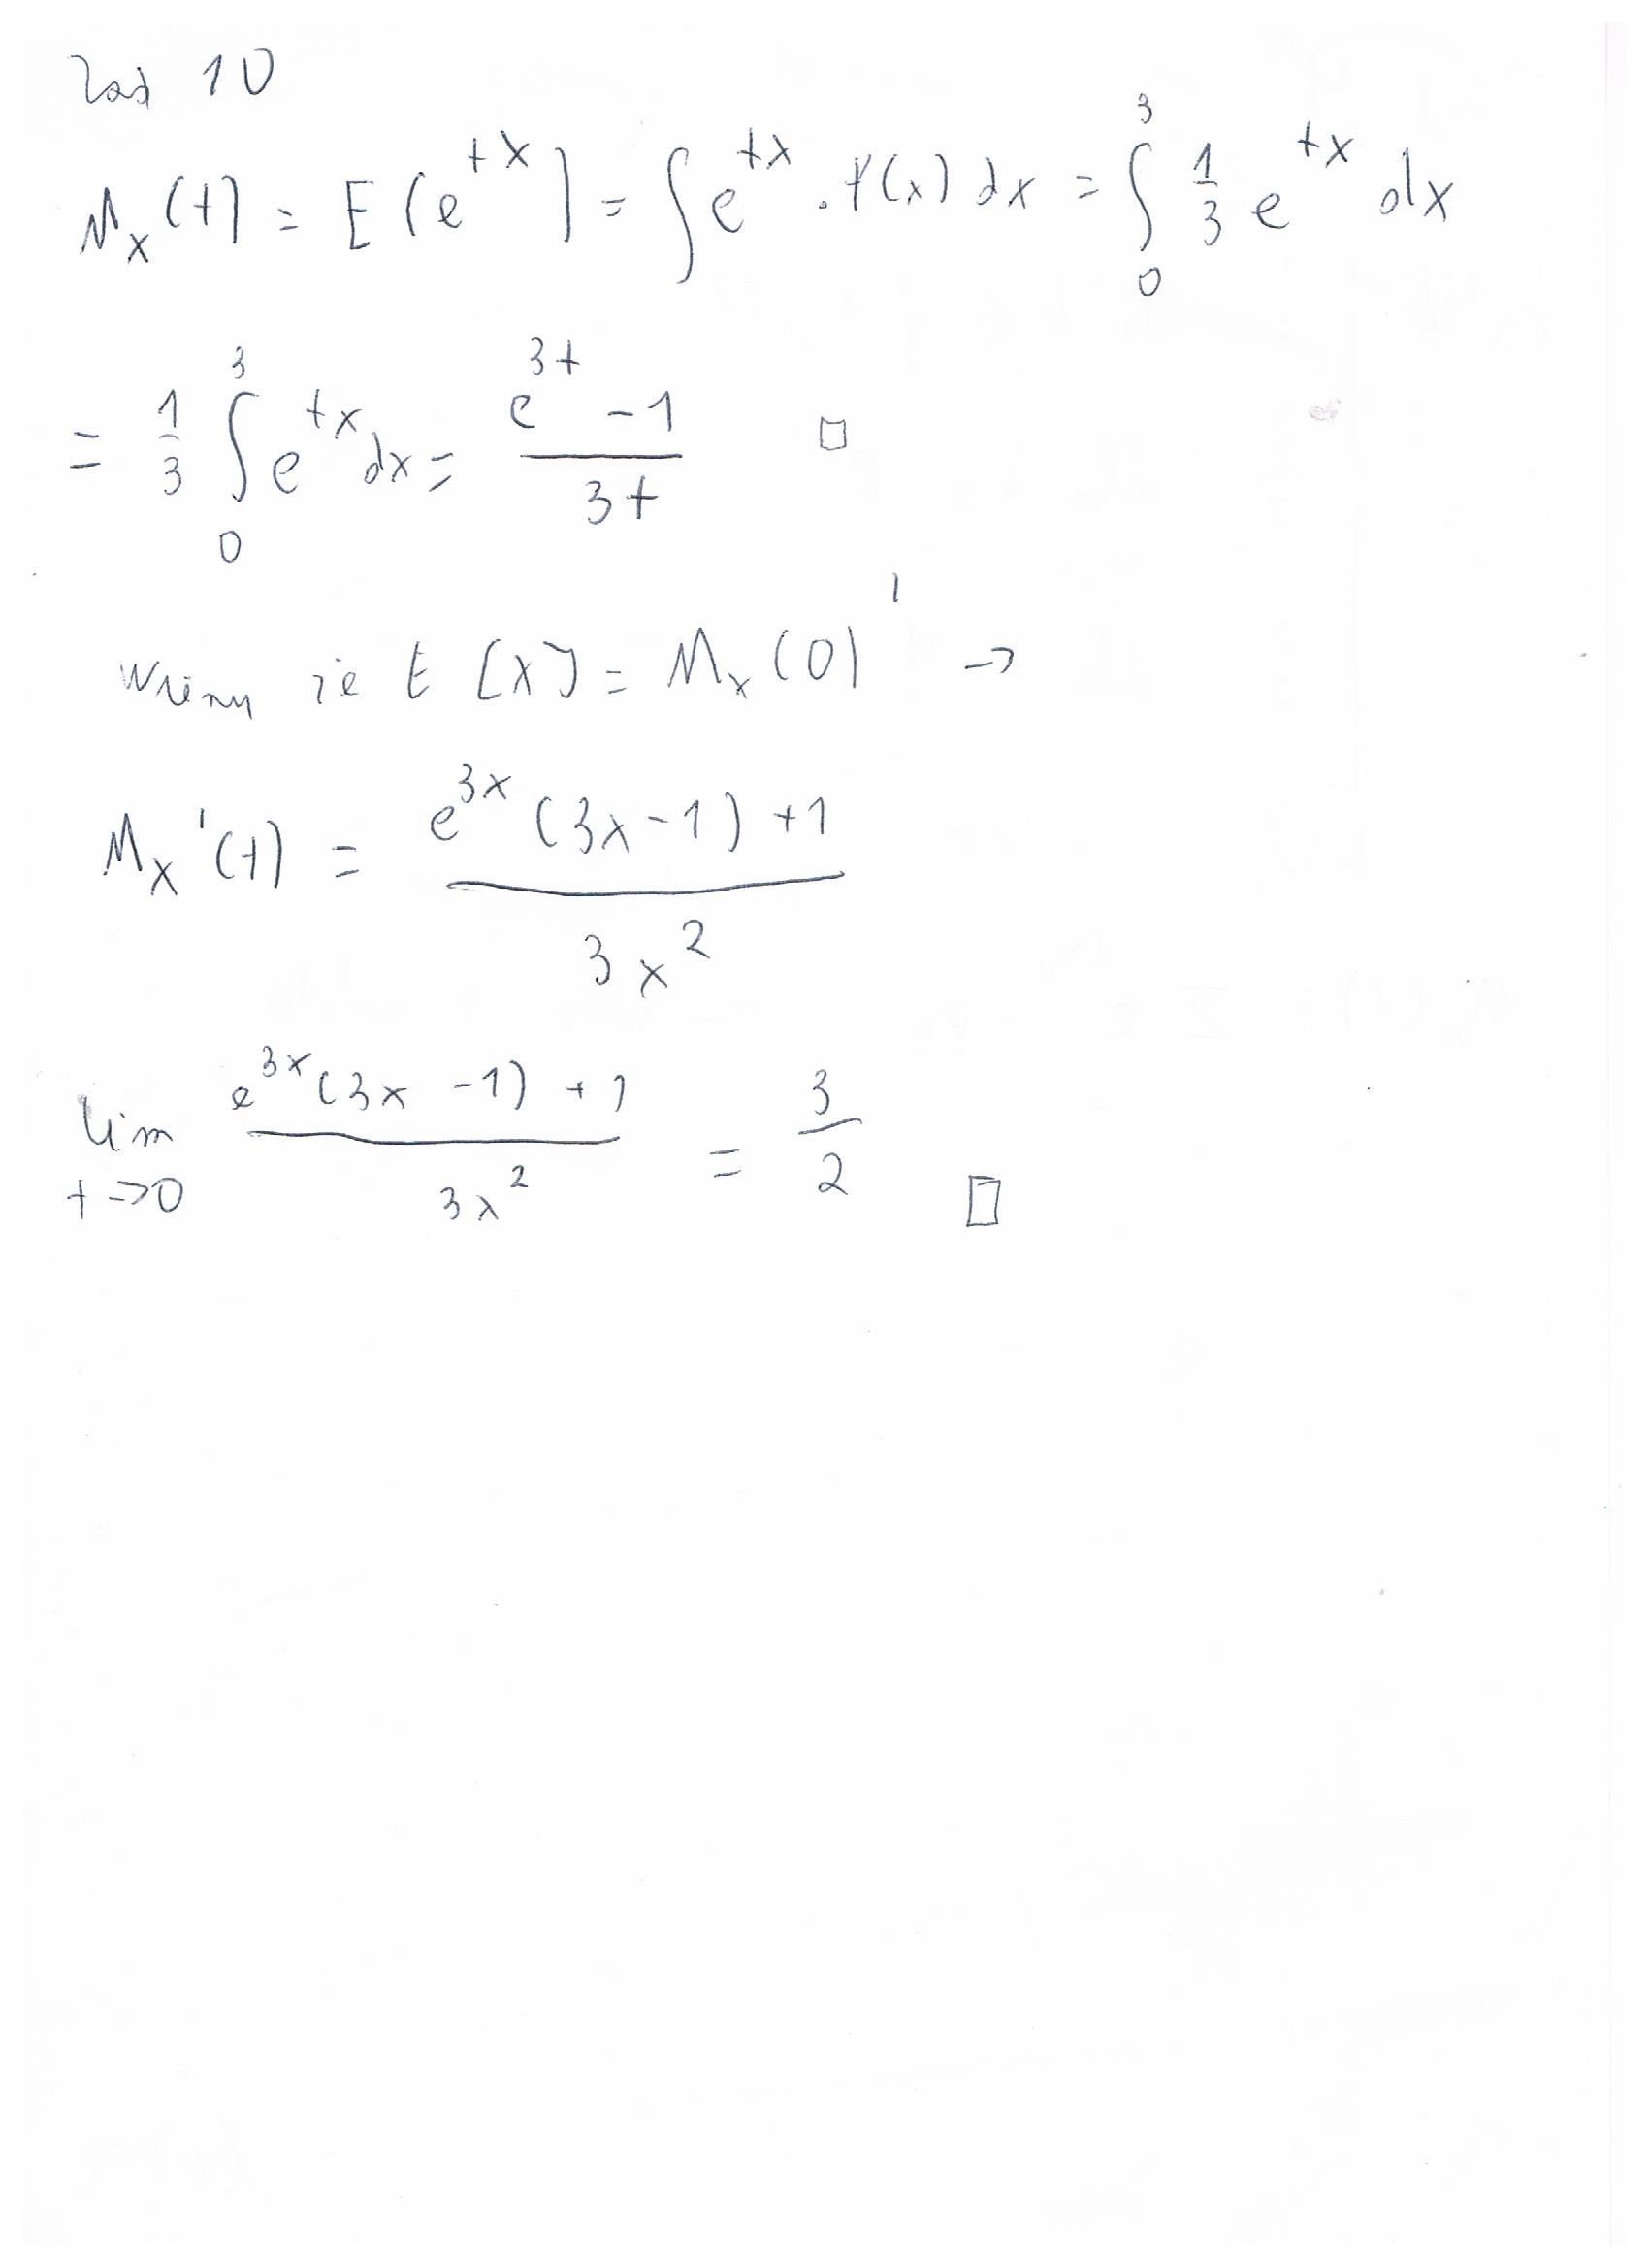 Zad 10
M_X(t) = E(e^{tX}) = ∫ e^{tx} · f(x) dx = ∫_0^3 1/3 e^{tx} dx
= 1/3 ∫_0^3 e^{tx} dx = (e^{3t} - 1)/(3t) □
Wiemy że E[X] = M_X(0)' →
M_X'(t) = (e^{3x}(3x-1)+1)/(3x^2)
lim_{t→0} (e^{3x}(3x-1)+1)/(3x^2) = 3/2 □